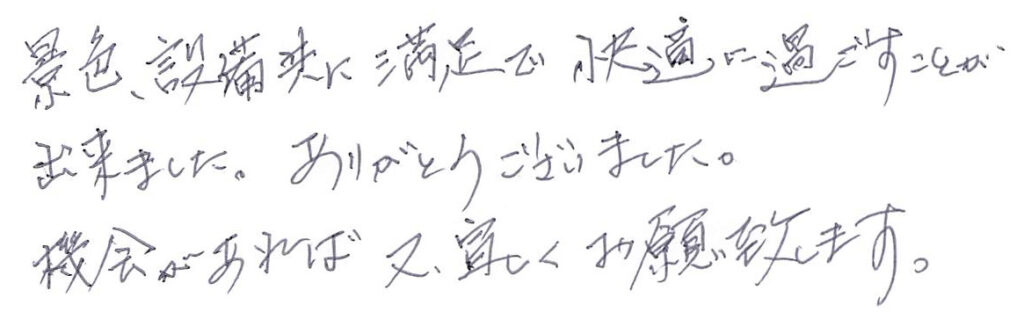 景色、設備共に満足で快適に過ごすことが
出来ました。ありがとうございました。
機会があれば又、宜しくお願い致します。